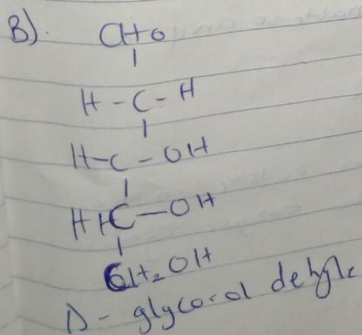 B). CHO
H-C-H
H-C-OH
H-C-OH
CH₂OH
D-glycoral dehyde